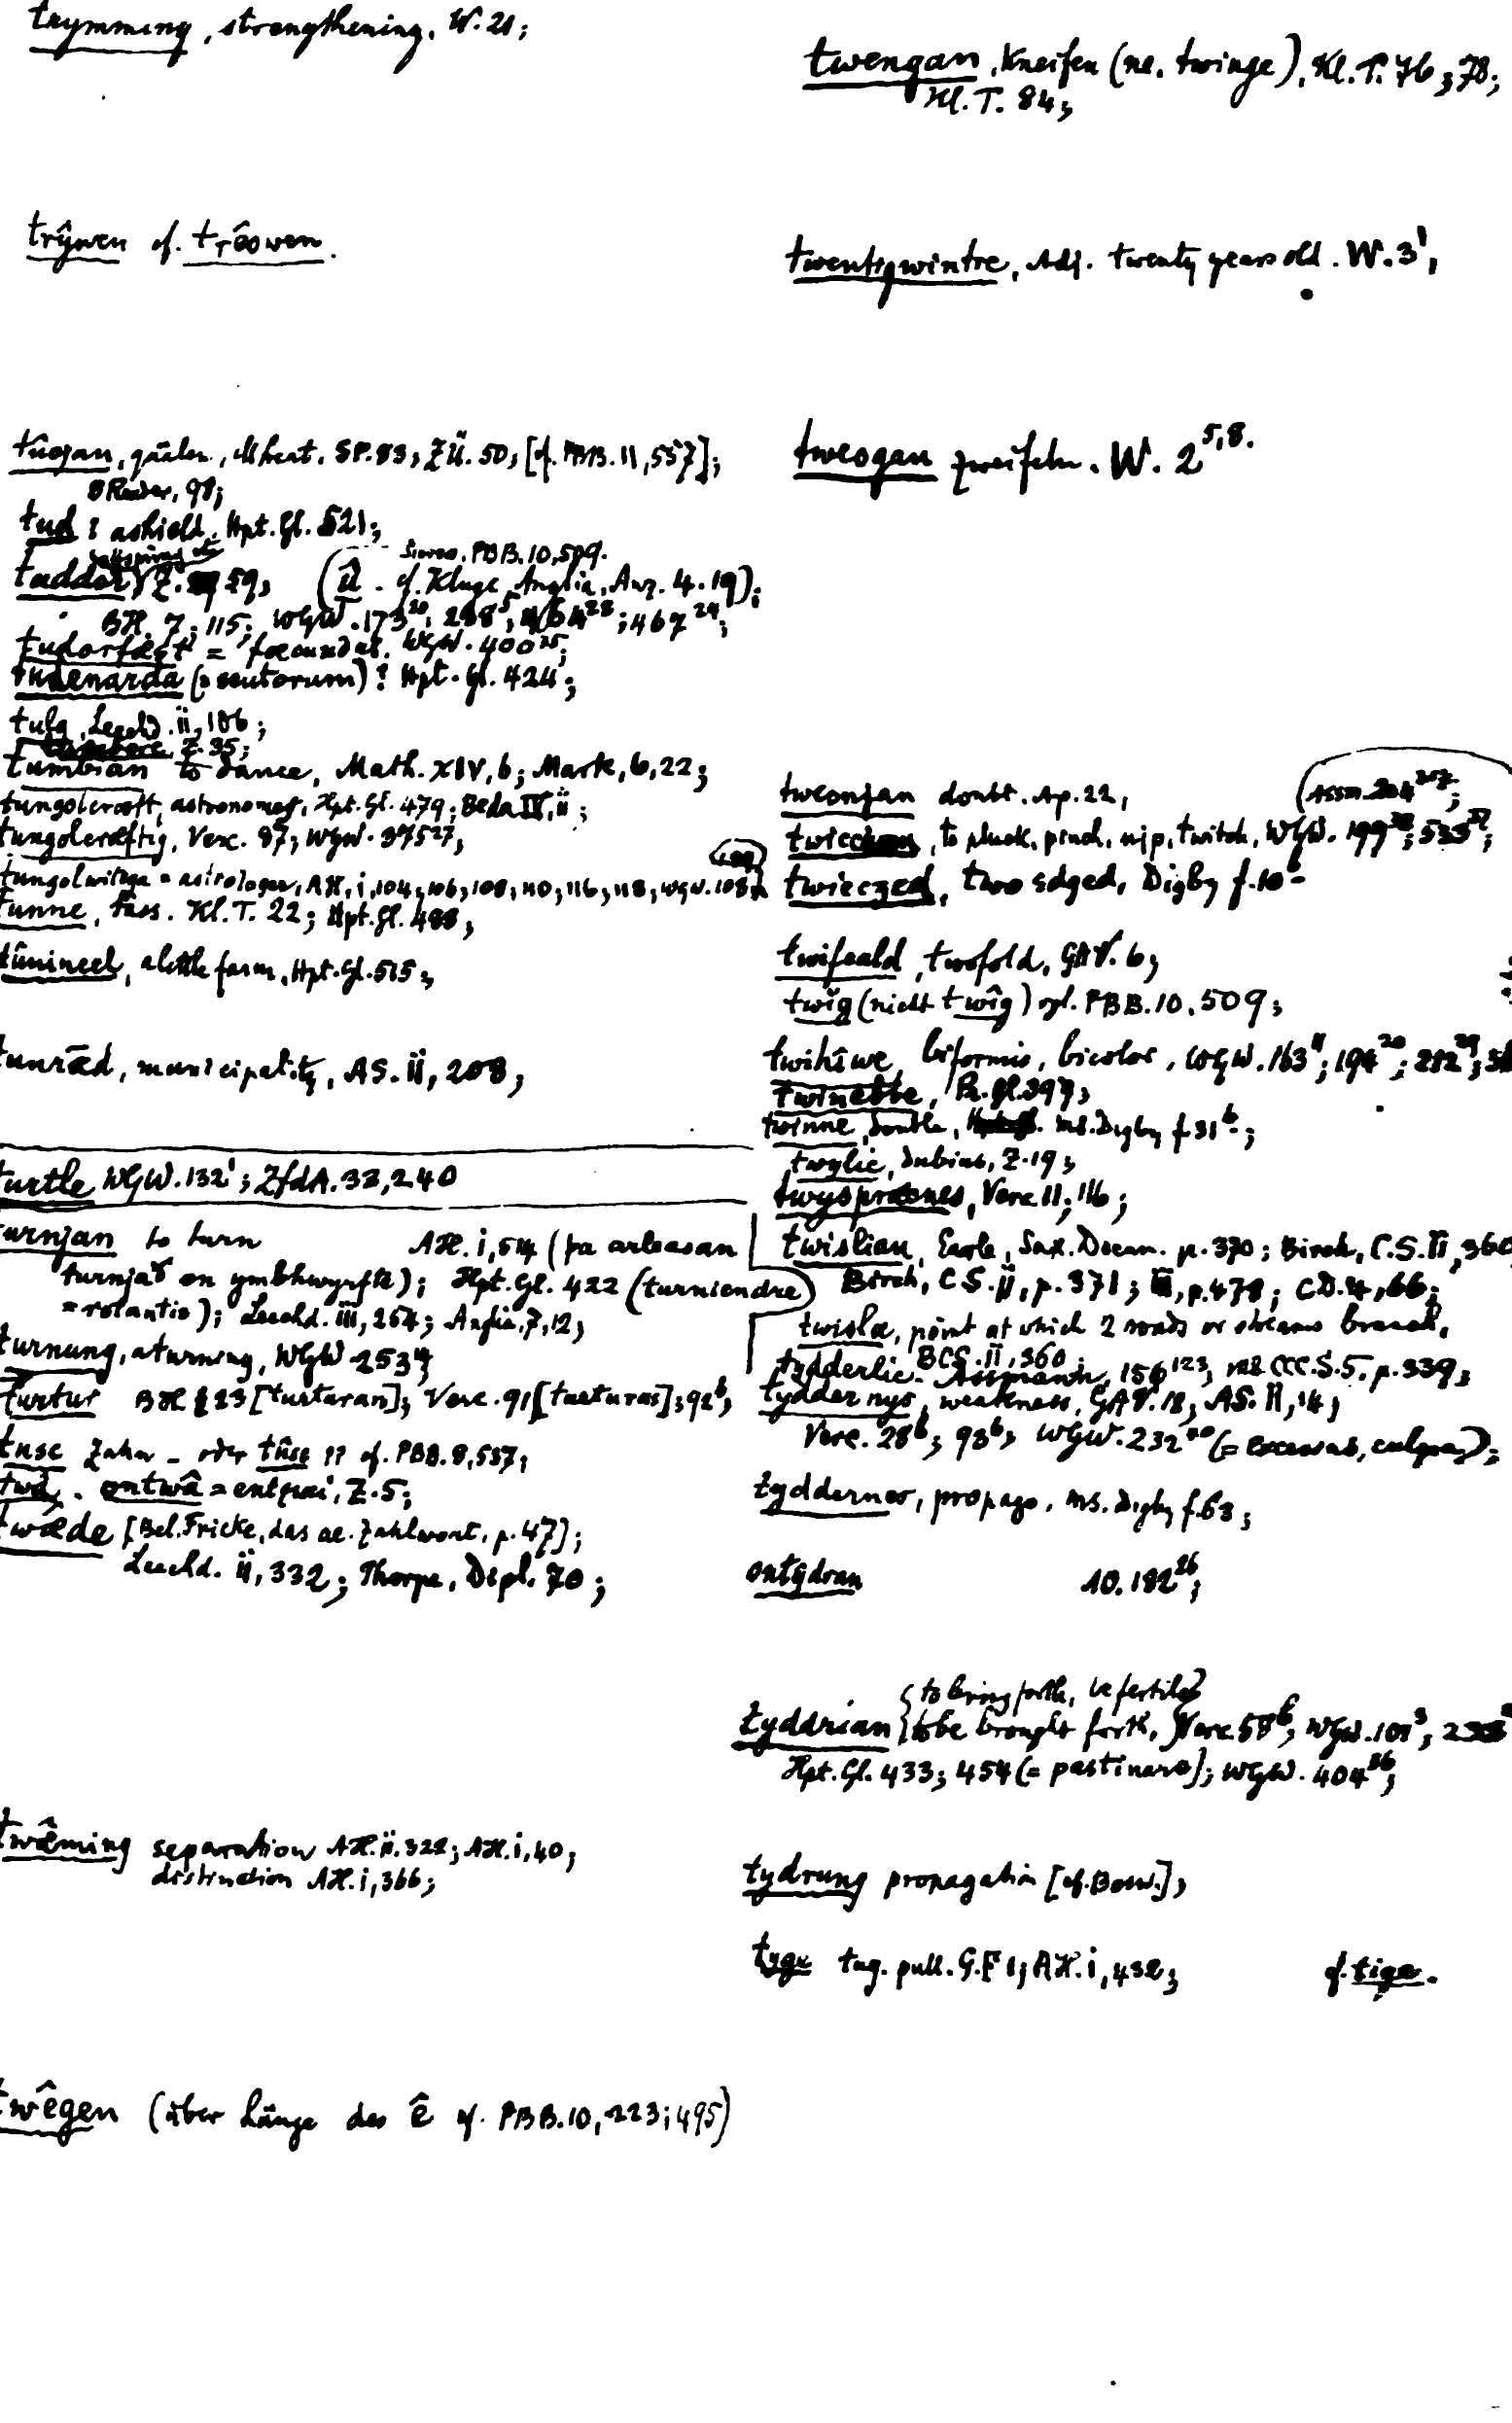 trymming, strengthening. W. 21;
trŷwen cf. trêowen.
tûcjan, quälen, SP. 83, ZÜ. 50, [cf. PBB. 11, 557];
tud ashield. Hpt. Gl. 521;
Sievers. PBB. 10, 509.
tuddor Z. 59, (û - cf. Kluge, Anglia, Anz. 4. 19);
BH. 7; 115; WGW. 173
tudorfæst = foecundus. WGW. 400
tudenarda (= scutorum)? Hpt. Gl. 424;
Leechd. ii, 186;
Z. 35;
tumbian to dance, Math. XIV, 6; Mark, 6, 22;
tungolcræft, astronomy, Hpt. Gl. 479; Beda IV, ii;
tungolcræftig, Verc. 87; WGW.
tungolwitega = astrologer, AH, i, 104, 106, 108, 110, 116, 118, WGW. 108
tunne, Fass. Kl. T. 22; Hpt. Gl. 488;
tûnincel, a little farm, Hpt. Gl. 515;
tunrǣd, municipality, AS. ii, 208,
turtle WGW. 132¹; ZfdA. 33, 240
turnjan to turn AH. i, 514 (þa arleasan
turnjað on ymbhwyrfte); Hpt. Gl. 422 (turniendre)
= rotantis); Leechd. iii, 264; Anglia, 7, 12;
turnung, a turning, WGW 253
turtur BH § 23 [turturan]; Verc. 91 [turturas]; 92ᵇ;
tusc Zahn - oder tûsc ?? cf. PBB. 8, 557;
twâ. ontwâ = entzwei, Z. 5;
twǣde [Bel. Fricke, das ae. Zahlwort, p. 47];
Leechd. ii, 332; Thorpe. Dipl. 70;
twǣming separation AH. ii. 322; AH. i, 40;
distinction AH. i, 366;
twêgen (über Länge des ê cf. PBB. 10, 223; 495)
twengan, Kneifen (ne. twinge). Kl. T. 76; 78;
Kl. T. 84;
twentigwintre, Adj. twenty years old. W. 3¹,
tweogan zweifeln. W. 2⁵,⁸.
tweonjan doubt. Ap. 22,
(Assm.
to pluck, pinch, nip, twitch, WGW. 199
twiecged, two edged, Digby f. 10ᵇ
twifeald, twofold, GAV. 6;
twĭg (nicht twîg) vgl. PBB. 10. 509;
twihîwe biformis, bicolor, WGW. 163
twinebbe, Pr. Gl. 397;
twinne, double, ms. Digby f. 31ᵇ;
twylic, dubius, Z. 19;
Verc. 11; 116;
twislian, Earle, Sax. Docum. p. 370; Birch, C.S. II, 360
Birch, C.S. ii, p. 371; iii, p. 478; C.D. 4, 66;
twisla, point at which 2 roads or streams branch,
BCS. II, 360;
tydderlic. Assmann, 156¹²³, ms CCC. S. 5. p. 339;
tyddernys, weakness, GAV. 18; AS. II, 14;
Verc. 28ᵇ; 93ᵇ; WGW. 232
tyddernes, propago, ms. Digby f. 63;
ontydran 10. 182²⁶;
{to bring forth, be fertile}
tyddrian {to be brought forth,} Verc. 58ᵇ; WGW. 101³;
Hpt. Gl. 433; 454 (= pastinare); WGW. 404³⁶;
tydrung propagation [cf. Bosw.];
tyge tug. pull. G.F 1; AH. i, 432; cf. tige.